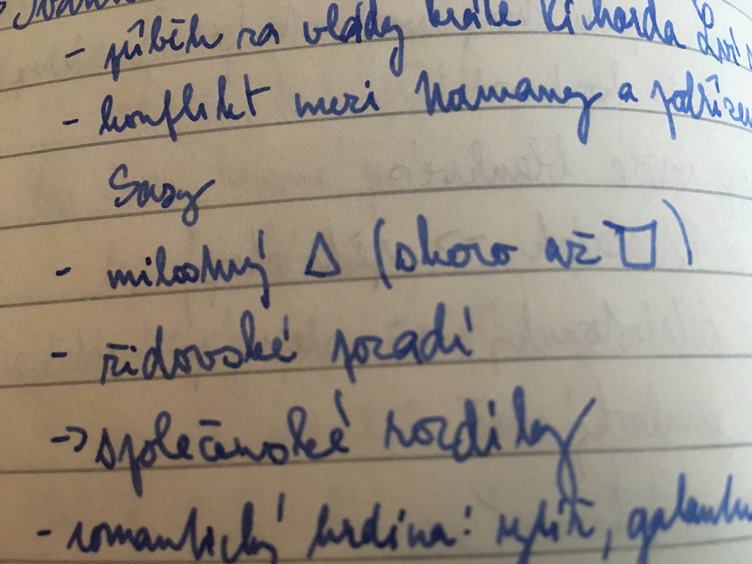 - příběh za vlády krále Richarda Lví
- konflikt mezi Normany a podříze
Sasy
- milostný △ (skoro až □)
- židovské pozadí
→ společenské rozdíly
- romantický hrdina: rytíř, galantn